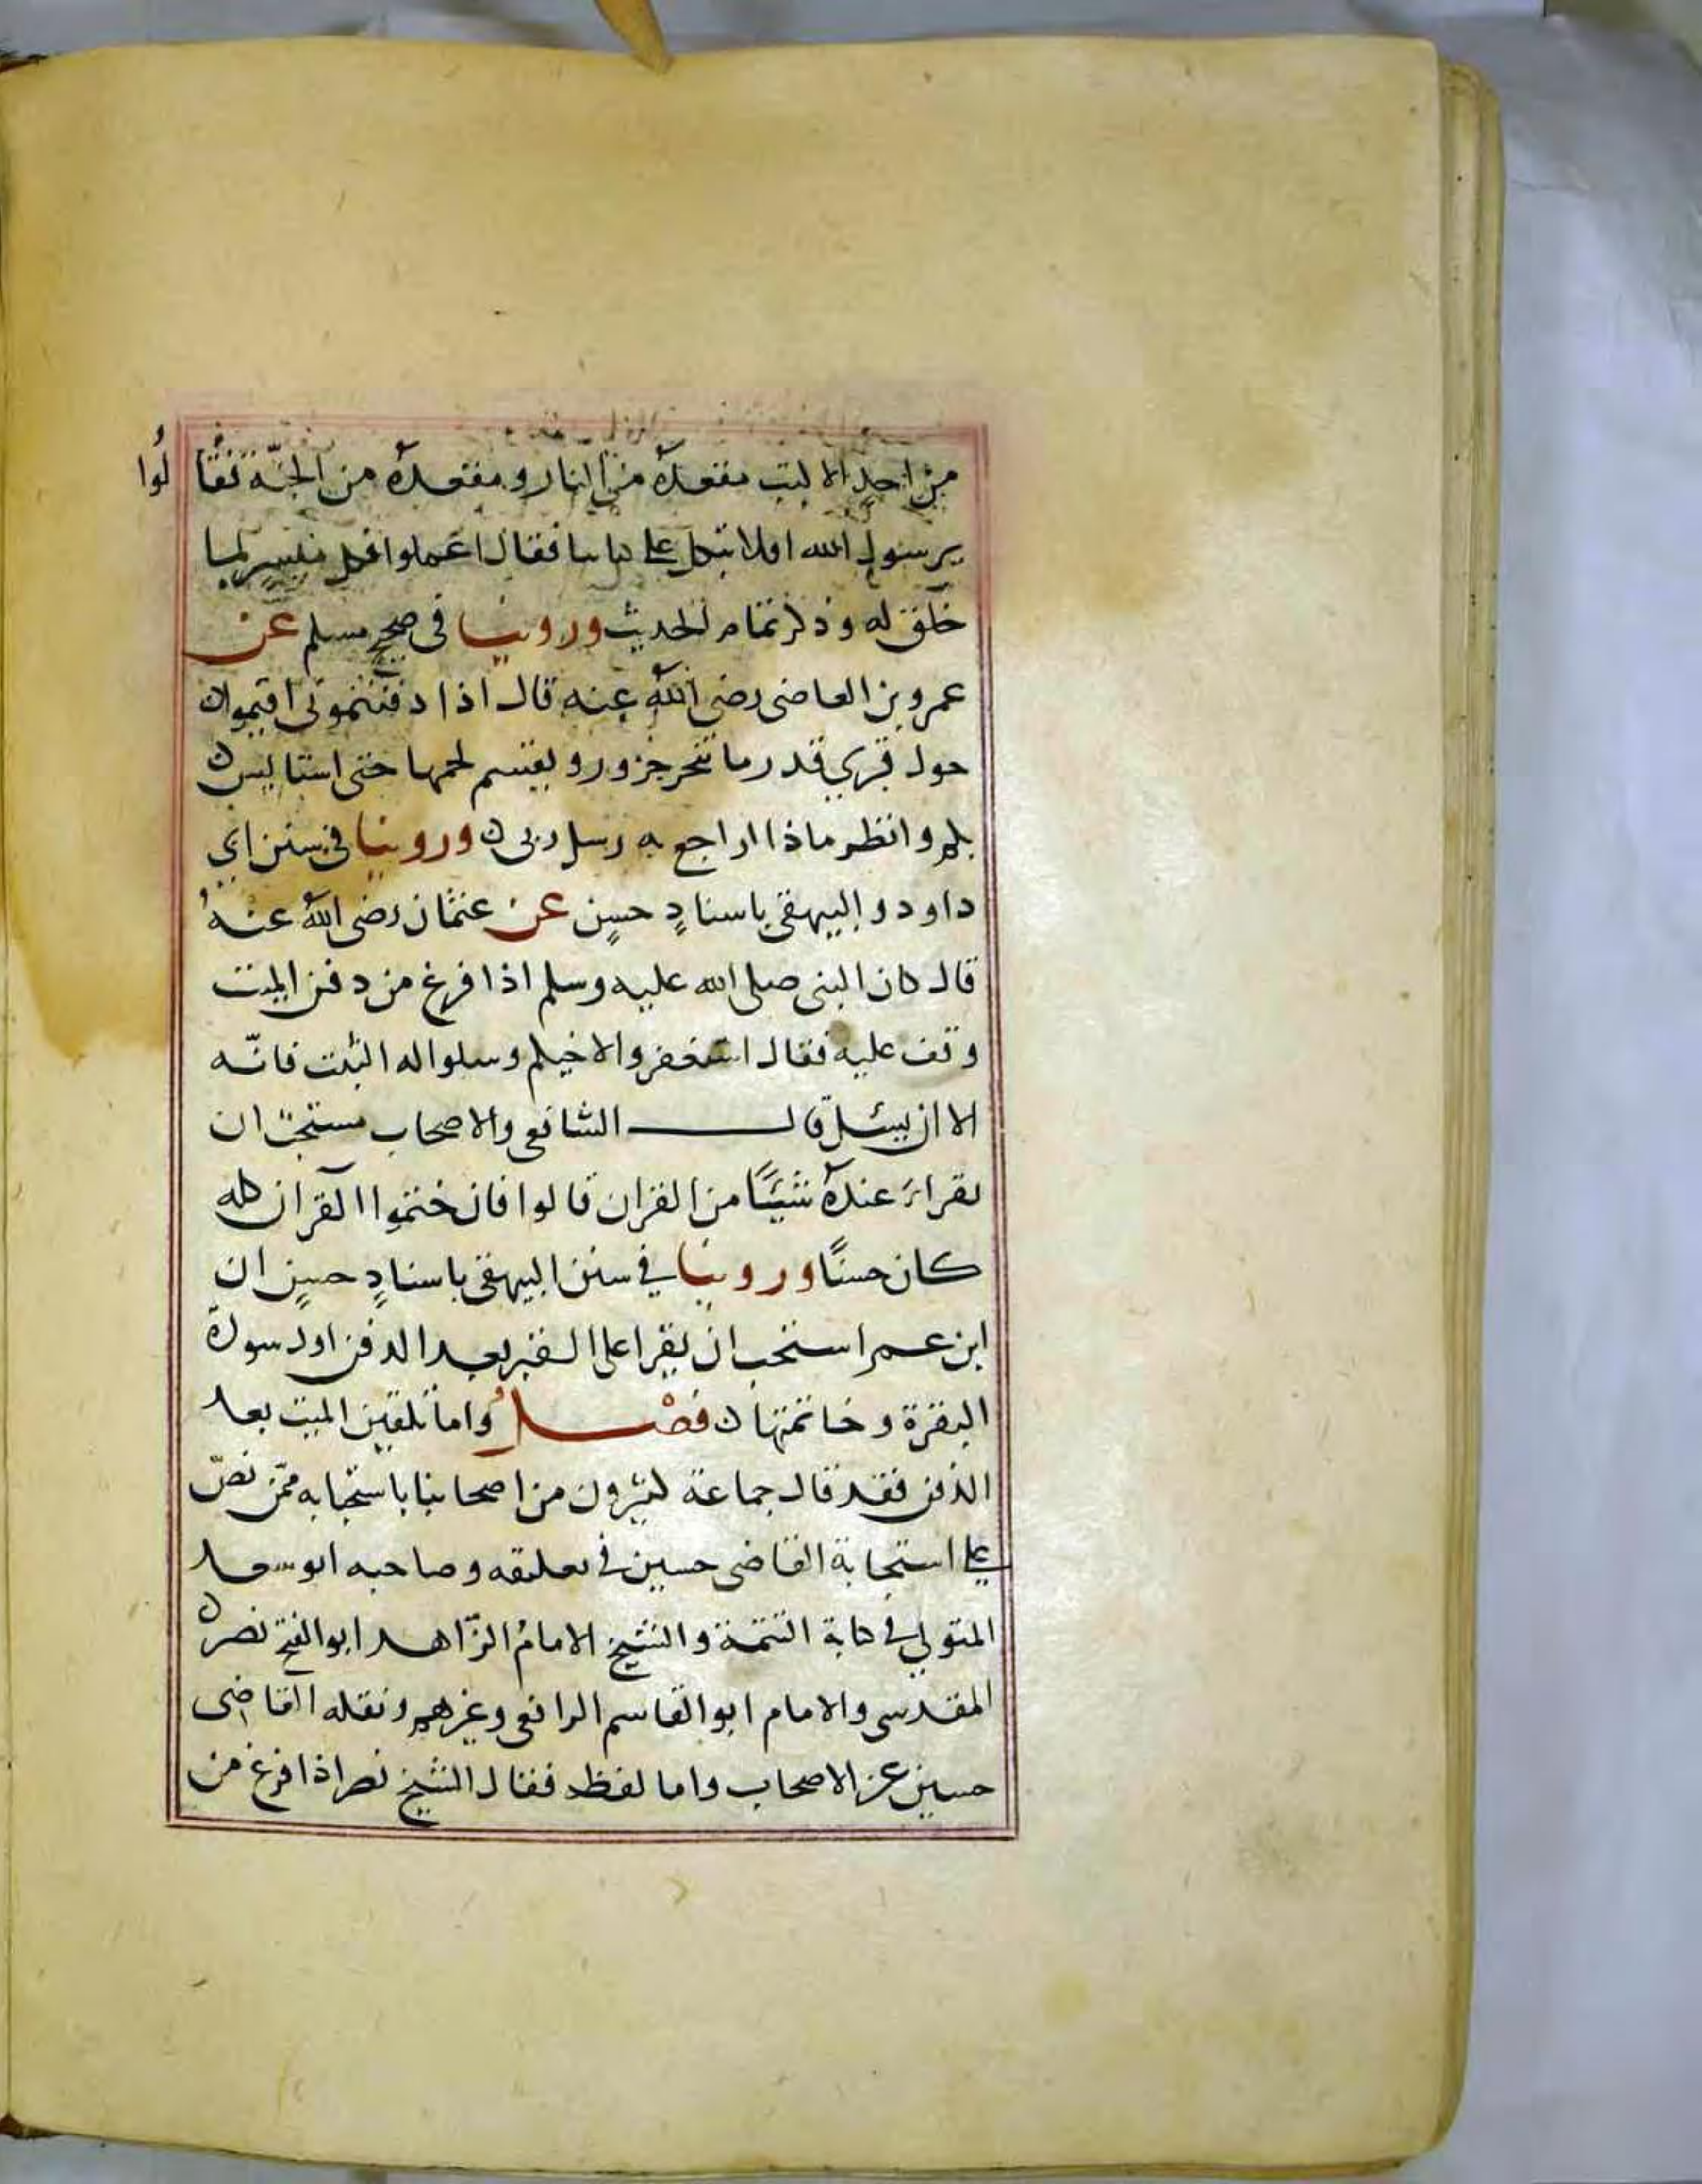 من احدٍ الا كتب مقعدهٗ من النار و مقعدهٗ من الجنّة فقالُوا
يرسول الله افلا نتكل على كتابنا فقال اعملوا فكل ميسر لما
خلق له و ذكر تمام الحديث وروينا فى صحيح مسلم عن
عمرو بن العاضى رضى الله عنه قال اذا دفنتمونى اقيموا
حول قبرى قدر ما تنحر جزور و يقسم لحمها حتى استانس
بكم و انظر ماذا اراجع به رسل ربى ن وروينا فى سنن ابي
داود و البيهقى باسنادٍ حسنٍ عن عثمان رضى الله عنهُ
قال كان النبى صلى الله عليه وسلم اذا فرغ من دفن الميت
وقف عليه فقال استغفروا لاخيكم وسلوا له التبت فانّه
الاان يسئل قال الشافعى والاصحاب يستحبّ ان
يقراءَ عندهٗ شيئًا من القران قالوا فان ختموا القران كله
كان حسنًا وروينا في سنن البيهقى باسنادٍ حسنٍ ان
ابن عمر استحب ان يقرا على القبر بعد الدفن اول سورة
البقرة و خاتمتها ن فصْلُ واما تلقين الميت بعد
الدفن فقد قال جماعة كثيرون من اصحابنا باستحبابه ممّن نصّ
على استحبابة القاضى حسين فى تعليقه و صاحبه ابو سعد
المتولي فى كتابة التتمة و الشيخ الامامُ الزّاهد ابوالفتح نصر ن
المقدسى والامام ابوالقاسم الرافعى وغيرهم ونقله القاضى
حسين عن الاصحاب واما لفظه فقال الشيخ نصر اذا فرغ من